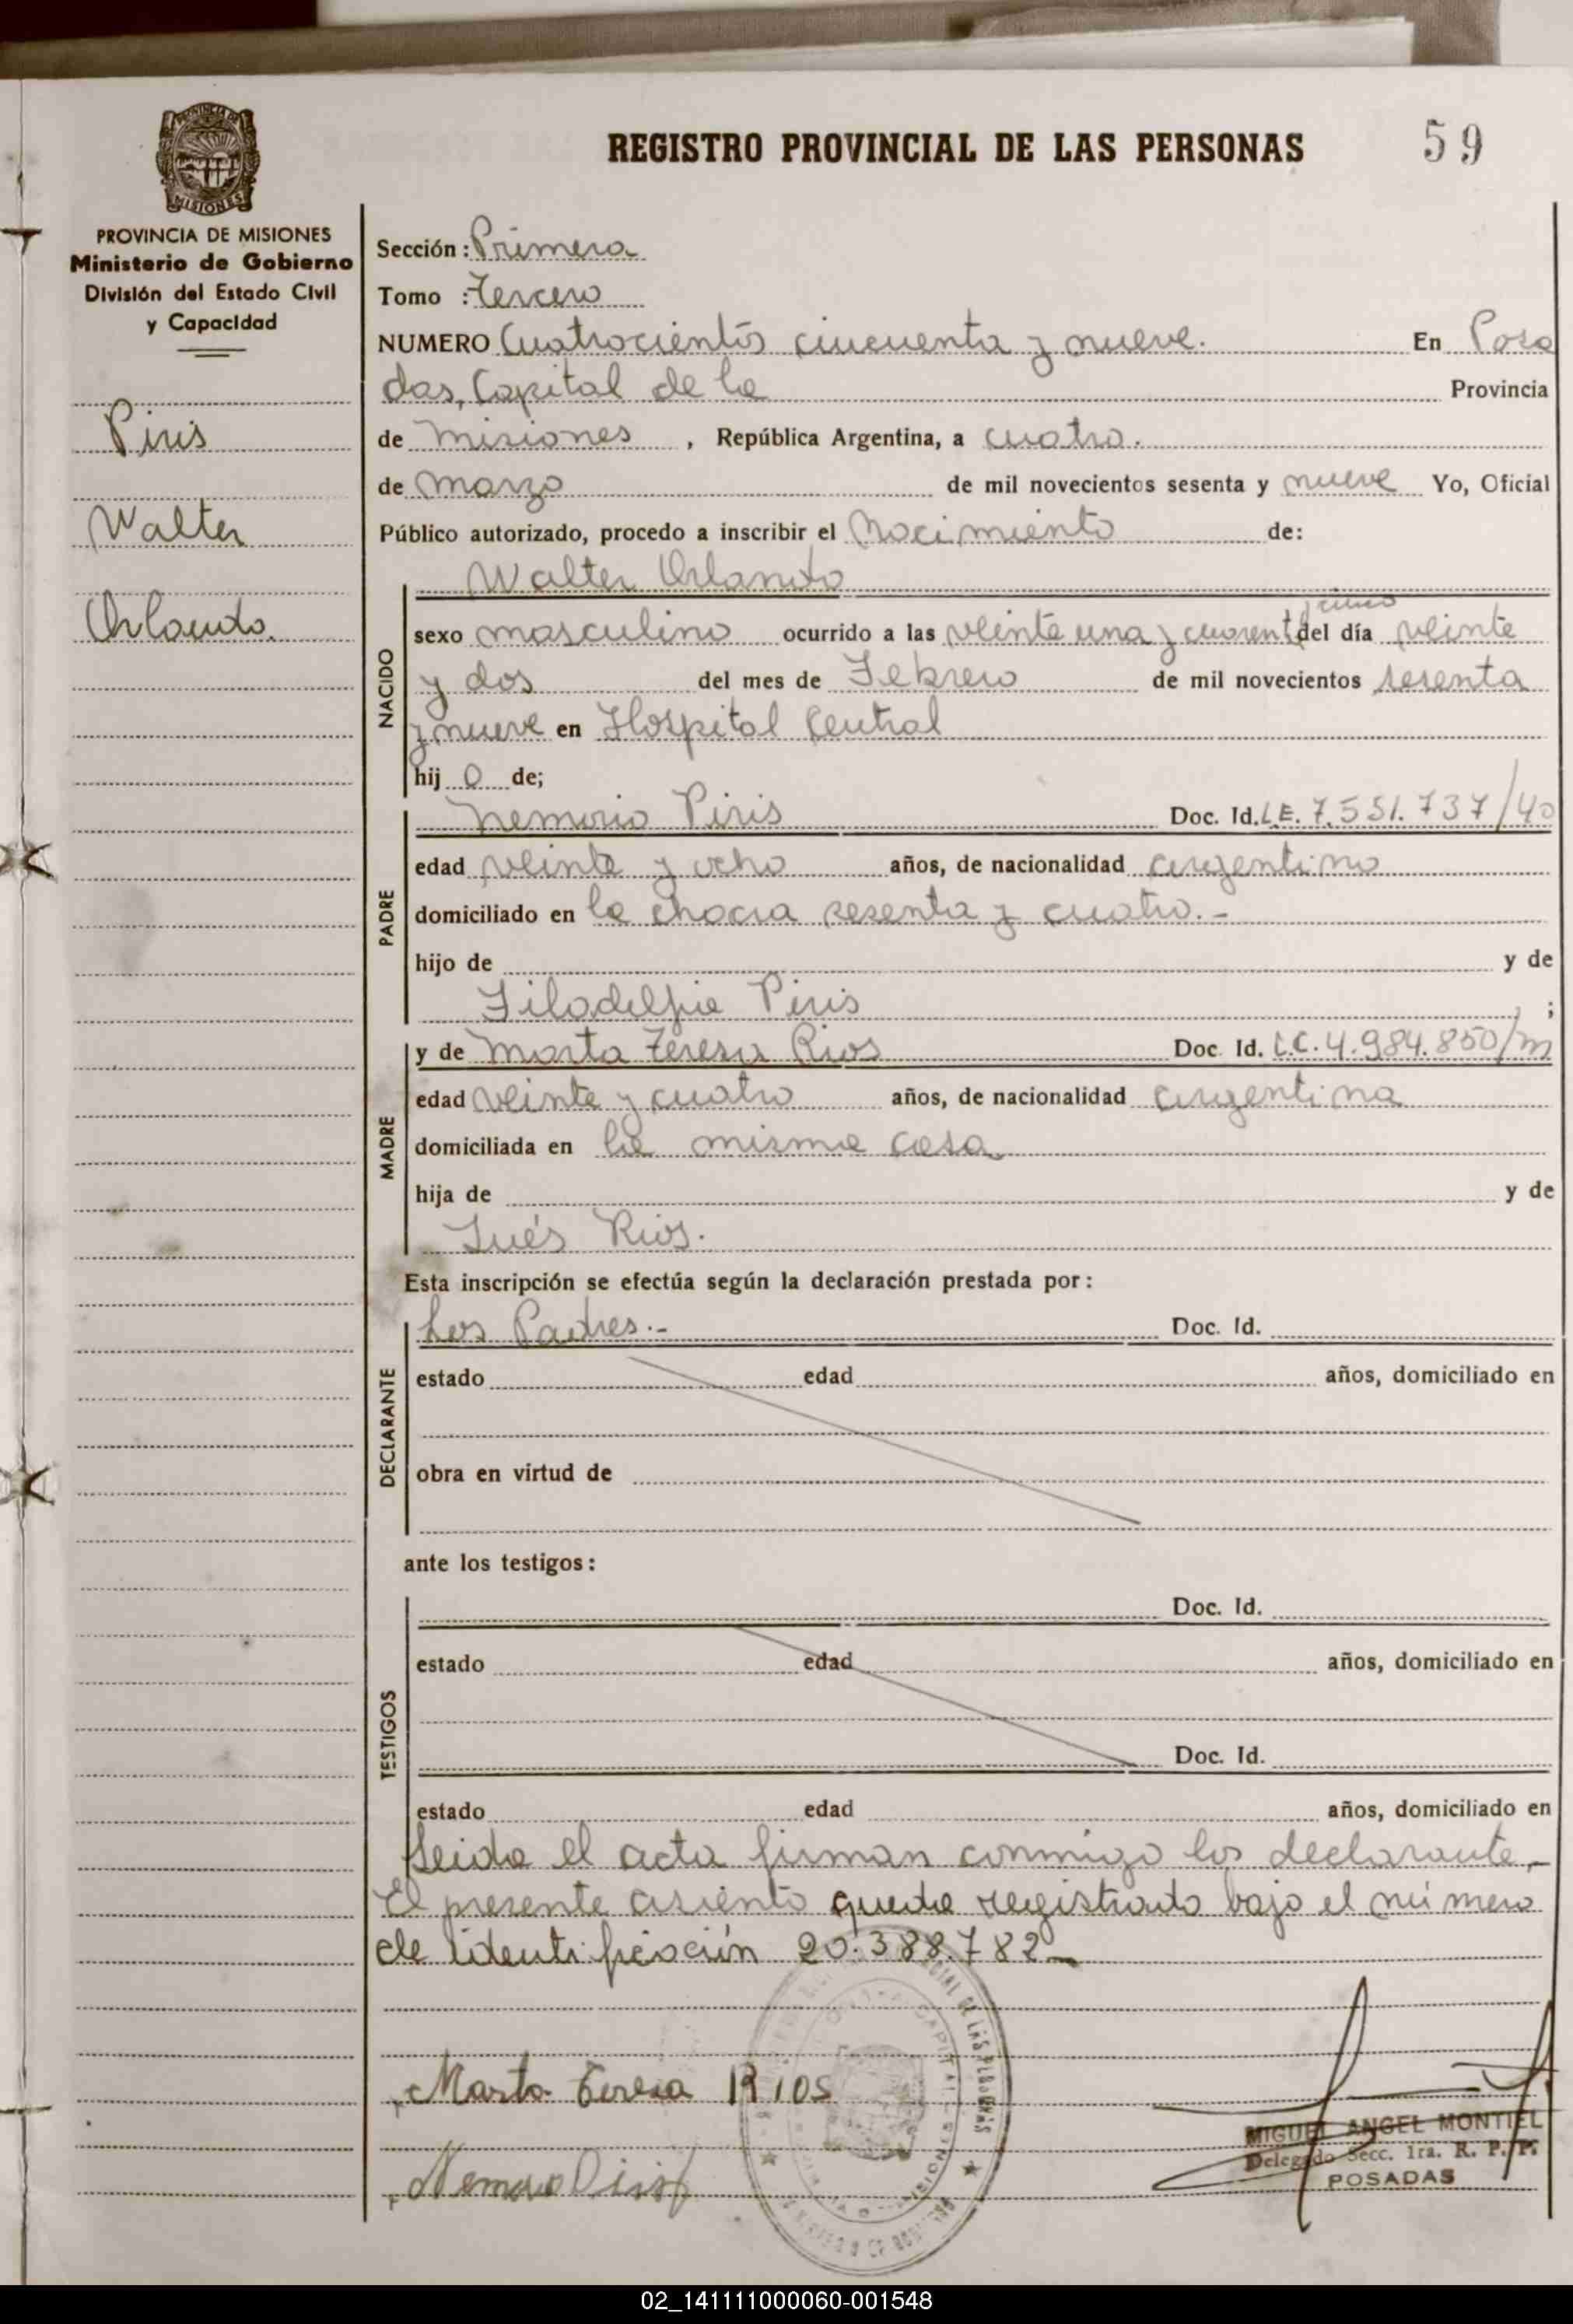 REGISTRO PROVINCIAL DE LAS PERSONAS 59
PROVINCIA DE MISIONES
Ministerio de Gobierno
División del Estado Civil
y Capacidad
Piris
Walter
Orlando.
Sección: Primera
Tomo : tercero
NUMERO Cuatrocientos cincuenta y nueve. En Posa
das, Capital de la Provincia
de Misiones , República Argentina, a cuatro.
de marzo de mil novecientos sesenta y nueve Yo, Oficial
Público autorizado, procedo a inscribir el Nacimiento de:
Walter Orlando
NACIDO
cinco
sexo masculino ocurrido a las veinte una y cuarenta del día veinte
y dos del mes de Febrero de mil novecientos sesenta
y nueve en Hospital Central
hij o de;
PADRE
Nemorio Piris Doc. Id. L.E. 7.551.737/40
edad veinte y ocho años, de nacionalidad argentino
domiciliado en la chacra sesenta y cuatro.-
hijo de y de
Filadelfia Piris ;
MADRE
y de Marta Teresa Rios Doc. Id. L.C. 4.984.850/m
edad veinte y cuatro años, de nacionalidad argentina
domiciliada en la misma casa
hija de y de
Inés Rios.
Esta inscripción se efectúa según la declaración prestada por:
DECLARANTE
Los Padres.- Doc. Id.
estado edad años, domiciliado en
obra en virtud de
ante los testigos:
TESTIGOS
Doc. Id.
estado edad años, domiciliado en
Doc. Id.
estado edad años, domiciliado en
Leida el acta firman conmigo los declarante,-
El presente asiento queda registrado bajo el número
de identificación 20.388.782-
Marta Teresa RIOS
MIGUEL ANGEL MONTIEL
Delegado Secc. 1ra. R. P. P.
POSADAS
02_141111000060-001548